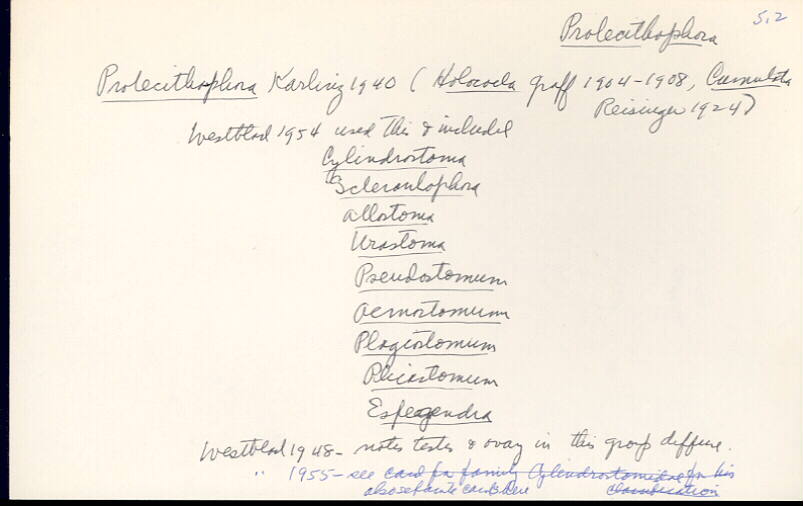 5.2
Prolecithophora
Prolecithophora Karling 1940 (Holocoela Graff 1904-1908, Cumulata
Reisinger 1924)
Westblad 1954 used this & included
Cylindrostoma
Scleraulophora
Allostoma
Urastoma
Pseudostomum
Acmostomum
Plagiostomum
Plicastomum
Espegrendra
Westblad 1948- notes testes & ovary in this group diffuse.
" 1955 - see card for family Cylindrostomidae for his
classification
also separate cards here